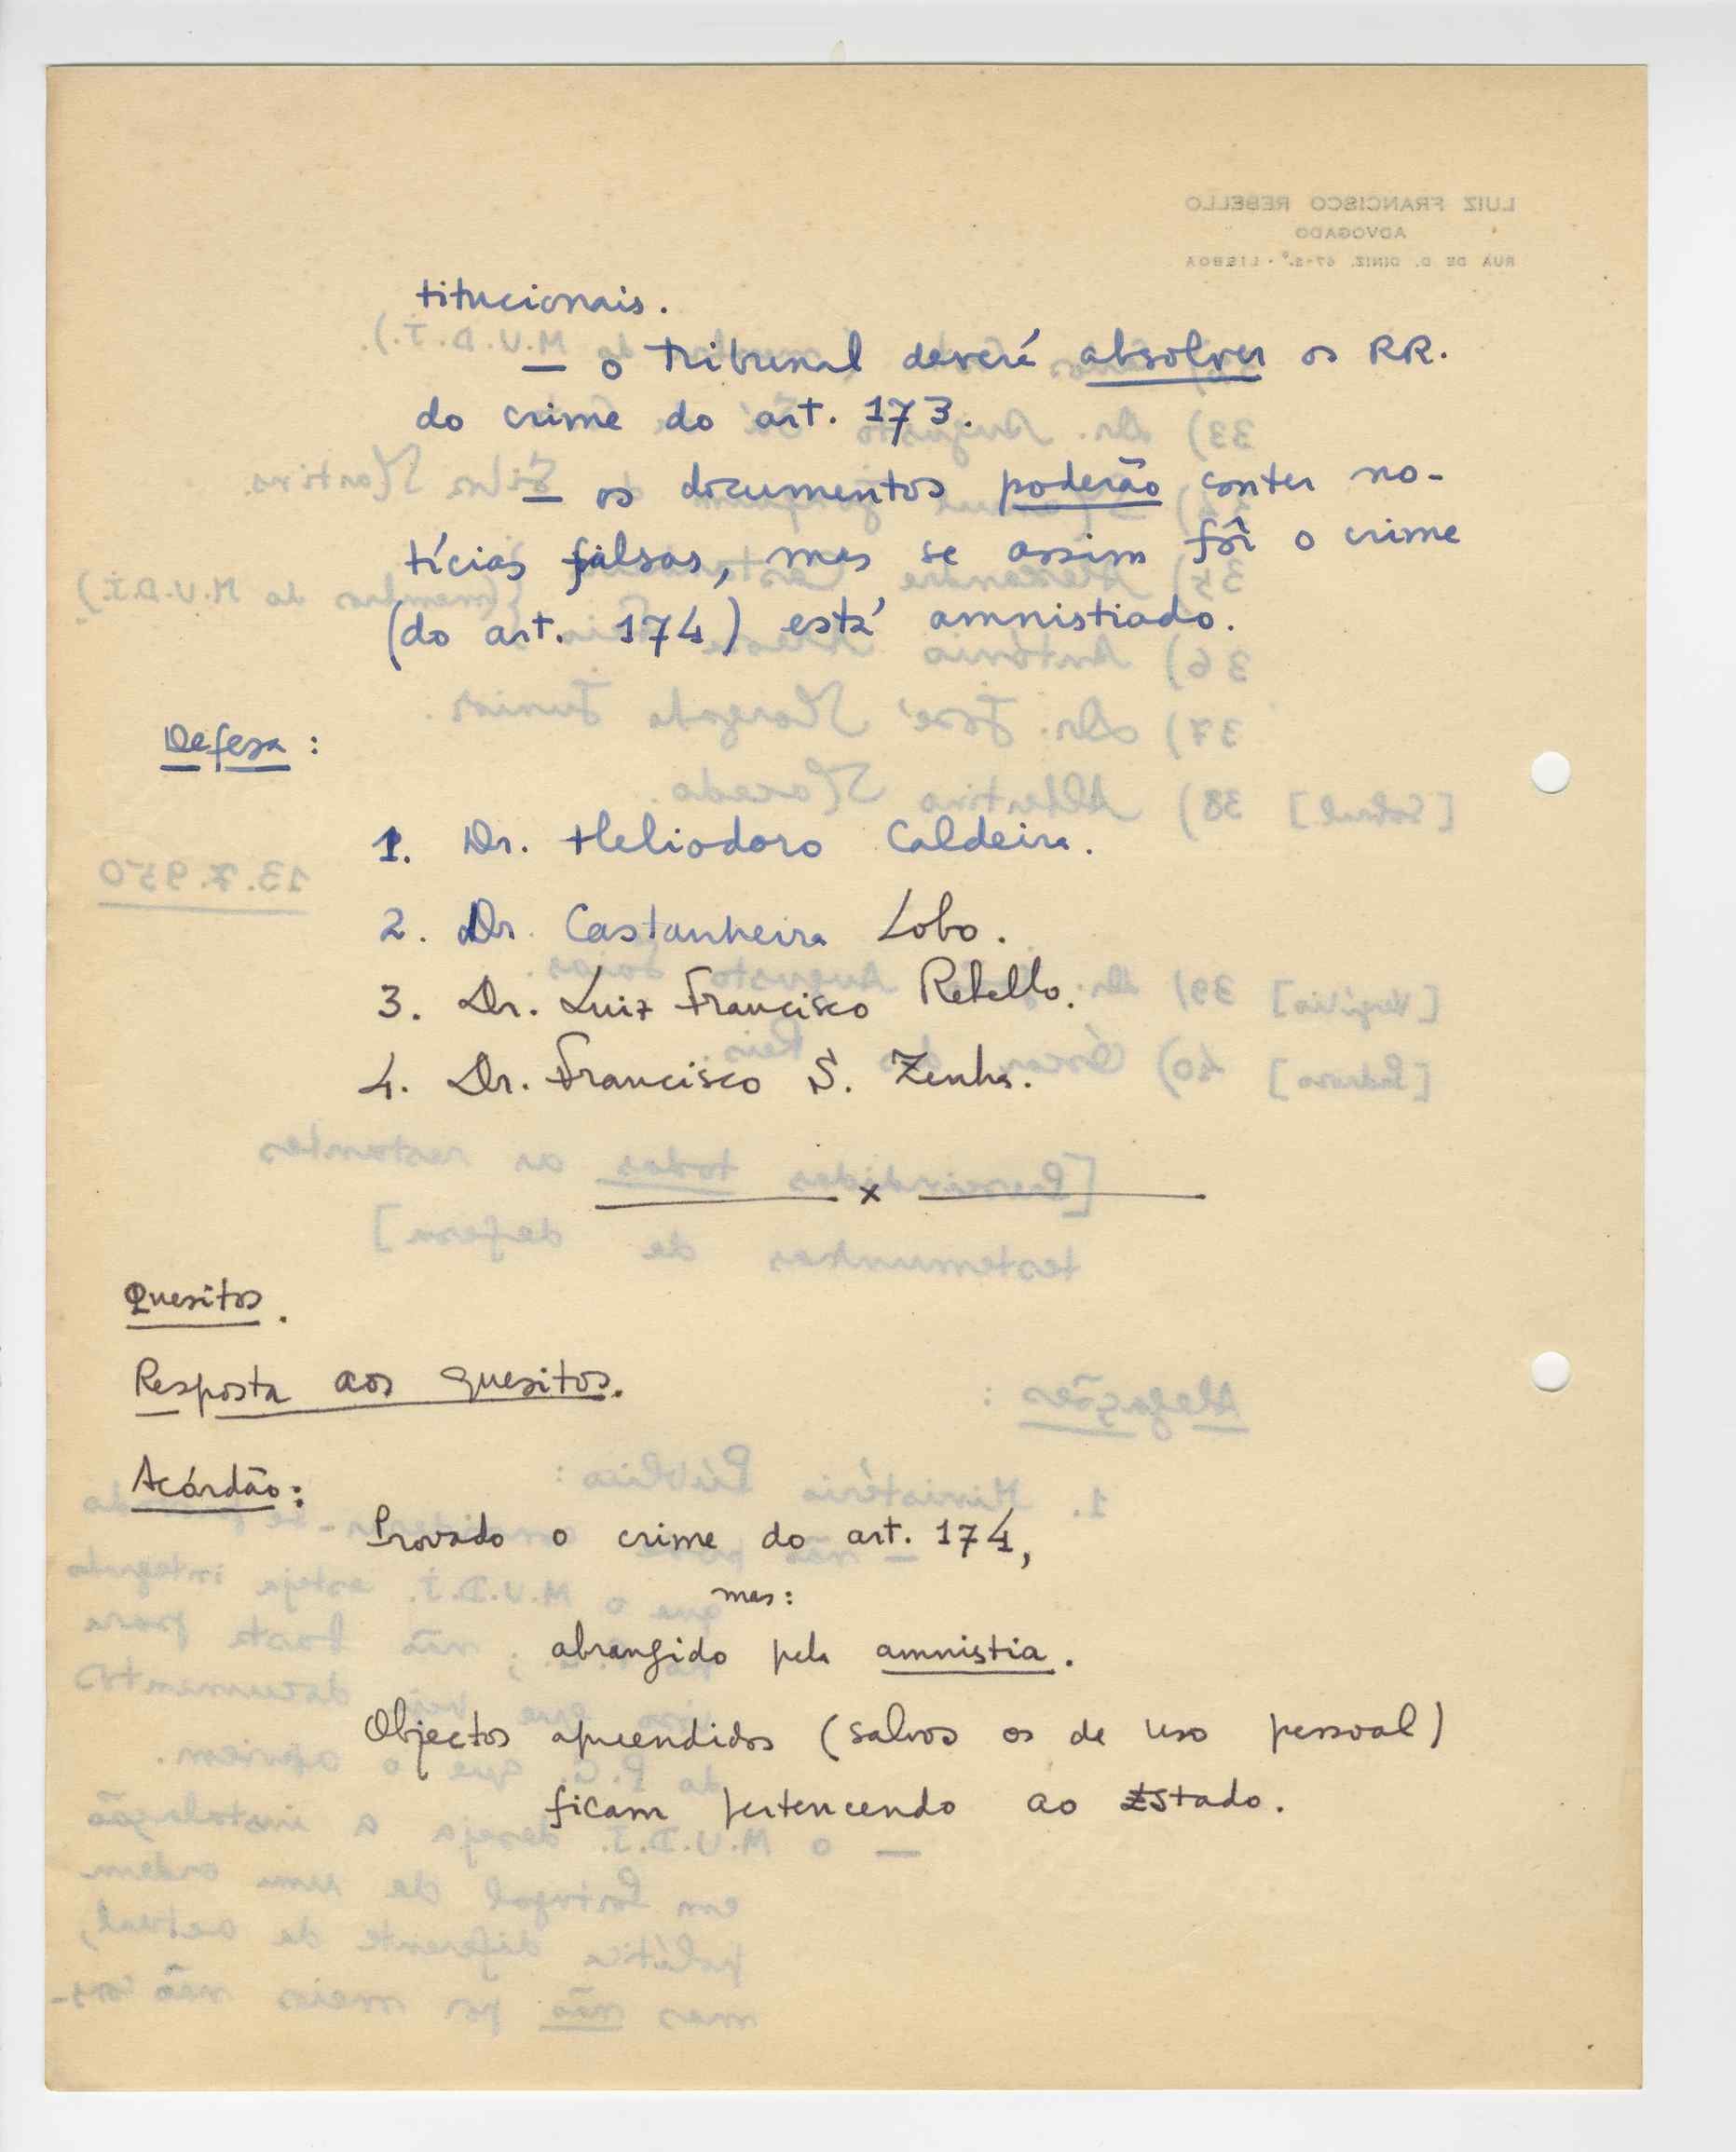 titucionais.
— o tribunal deverá absolver os RR.
do crime do art. 173.
— os documentos poderão conter no-
tícias falsas, mas se assim fôr o crime
(do art. 174) está amnistiado.
Defesa :
1. Dr. Heliodoro Caldeira.
2. Dr. Castanheira Lobo.
3. Dr. Luiz Francisco Rebello.
4. Dr. Francisco S. Zenha.
x
Quesitos.
Resposta aos quesitos.
Acórdão:
Provado o crime do art. 174,
mas:
abrangido pela amnistia.
Objectos apreendidos (salvos os de uso pessoal)
ficam pertencendo ao Estado.